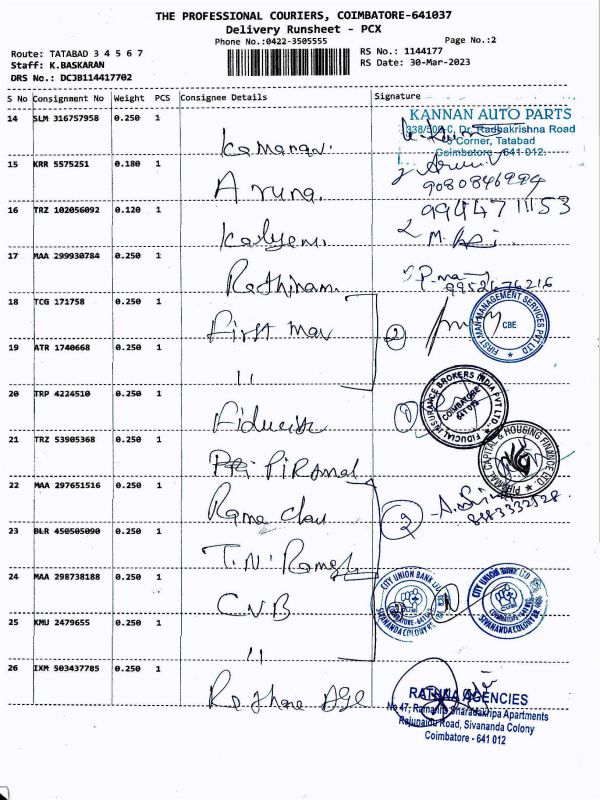 THE PROFESSIONAL COURIERS, COIMBATORE-641037
Delivery Runsheet - PCX
Phone No.:0422-3505555
Page No.:2
Route: TATABAD 3 4 5 6 7
Staff: K.BASKARAN
DRS No.: DCJB114417702
RS No.: 1144177
RS Date: 30-Mar-2023
S No Consignment No Weight PCS Consignee Details Signature
14 SLM 316757958 0.250 1
KANNAN AUTO PARTS
338/500-C, Dr. Radhakrishna Road
Corner, Tatabad
Coimbatore - 641 012.
15 KRR 5575251 0.180 1
Aruna.
9080846994
16 TRZ 102056092 0.120 1
9944711153
17 MAA 299930784 0.250 1
Rathinam.
9952676216
18 TCG 171758 0.250 1
First Man
2
FIRST MAN MANAGEMENT SERVICES PVT LTD
CBE
19 ATR 1740668 0.250 1
"
20 TRP 4224510 0.250 1
1
FIDUCIAL INSURANCE BROKERS INDIA PVT LTD.
COIMBATORE
641 012
21 TRZ 53905368 0.250 1
Piramal
PIRAMAL CAPITAL & HOUSING FINANCE LTD.
22 MAA 297651516 0.250 1
23 BLR 450505090 0.250 1
T.N. Ramesh
24 MAA 298738188 0.250 1
CUB
CITY UNION BANK LTD
SIVANANDA COLONY BR.
COIMBATORE-641012
CITY UNION BANK LTD
SIVANANDA COLONY BR.
25 KMU 2479655 0.250 1
"
26 IXM 503437785 0.250 1
RATHNA AGENCIES
No 47, Ramaniys Sharadakripa Apartments
Rajunaidu Road, Sivananda Colony
Coimbatore - 641 012